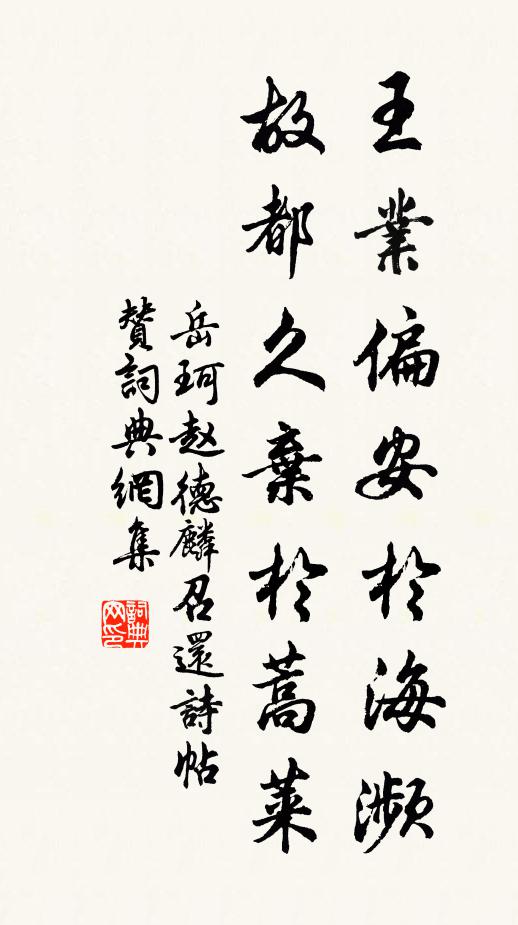 王業偏安於海瀕
故都久棄於蒿萊
岳珂赵德麟召還詩帖
贊詞典網集
詞典网印